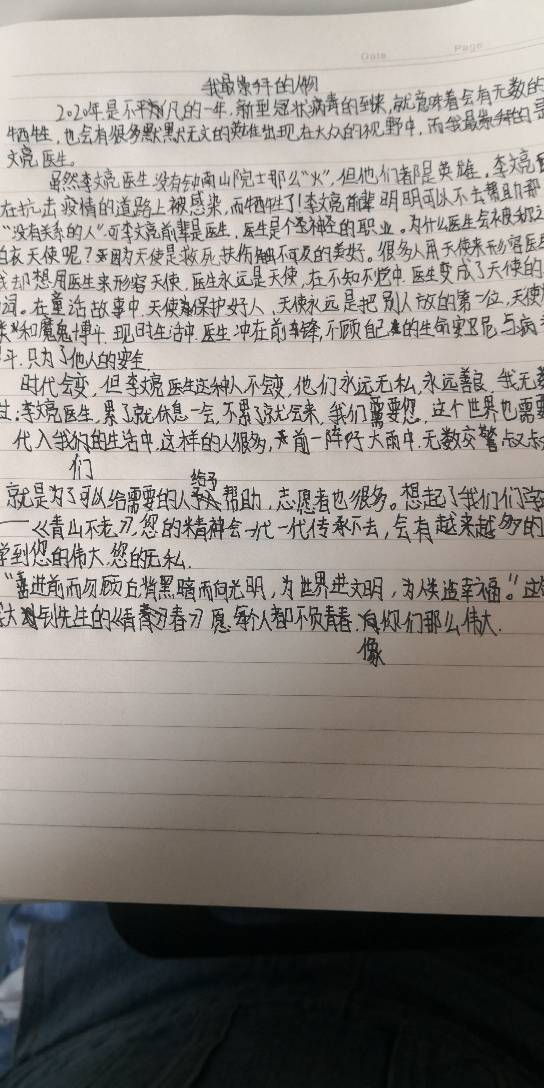 Date Page
我最崇拜的人物
2020年是不平凡的一年,新型冠状病毒的到来,就意味着会有无数的
牺牲,也会有很多默默无文的英雄出现在大众的视野中,而我最崇拜的是
文亮医生。
虽然李文亮医生没有钟南山院士那么“火”,但他们都是英雄。李文亮
在抗击疫情的道路上被感染,而牺牲了!李文亮前辈明明可以不去帮助那
“没有关系的人”可李文亮前辈是医生,医生是个圣神的职业。为什么医生会被
白衣天使呢?因为天使是救死扶伤触不可及的美好。很多人用天使来形容医
我却想用医生来形容天使,医生永远是天使,在不知不觉中医生变成了天使的
词。在童话故事中,天使保护好人,天使永远是把别人放的第一位,天使
和魔鬼博斗,现时生活中,医生冲在前锋,不顾自己的生命安危与病
斗,只为了他人的安全
时代会变,但李文亮医生这种人不会变,他们永远无私,永远善良,我无
李文亮医生,累了就休息一会,不累了就会来,我们需要您,这个世界也需要
代入我们的生活中,这样的人很多,前一阵吁大雨中,无数交警
们
给予
就是为了可以给需要的人帮助,志愿者也很多。想起了我们们
——《青山不老》,您的精神会一代一代传承下去,会有越来越多的
学到您的伟大,您的无私.
进前而勿顾后,背黑暗而向光明,为世界进文明,为人类造幸福。”这
大钊先生的《青春》愿每个人都不负青春.向你们那么伟大.
像